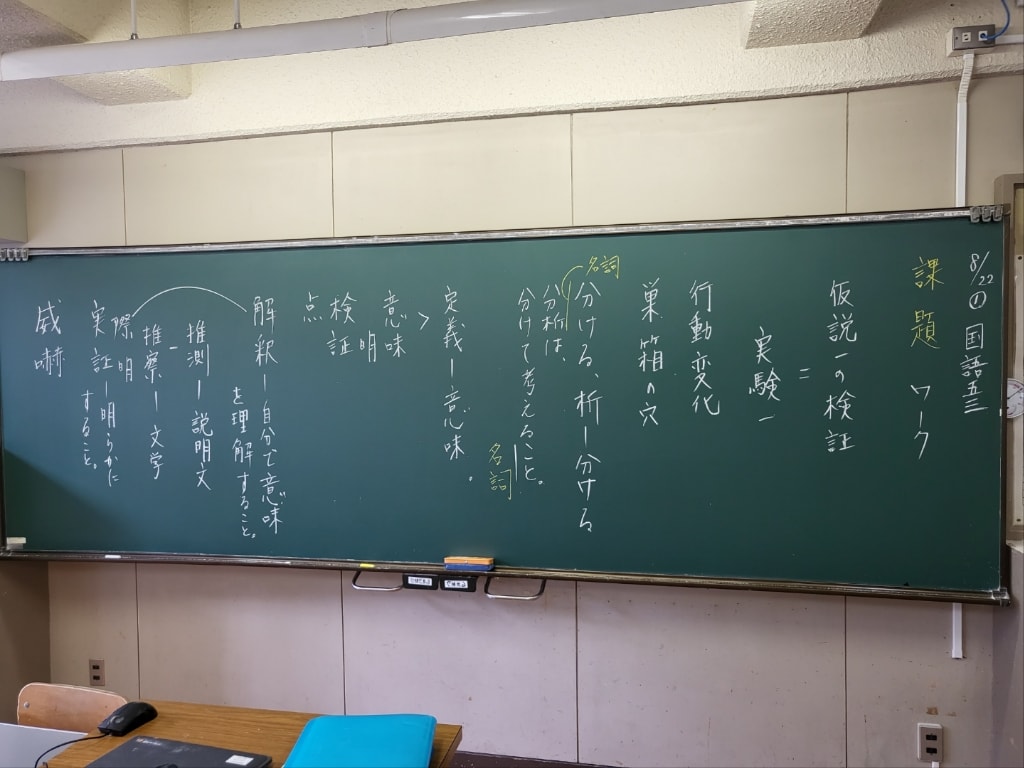 8/22 ① 国語五三
課題 ワーク
仮説一の検証
=
実験一
行動変化
巣箱の穴
名詞
分ける、析ー分ける
分析は、
分けて考えること。
名詞
定義ー意味
>
意味
明
検証
点
解釈ー自分で意味
を理解すること。
推測ー説明文
ー
推察ー文学
際明
実証ー明らかに
すること。
威嚇